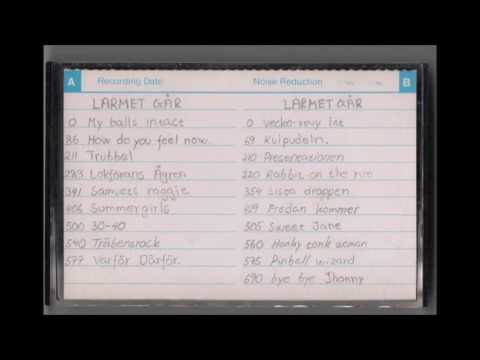 A Recording Date Noise Reduction B
LARMET GÅR
0 My balls intact
86 How do you feel now.
211 Trubbel
283 Lokförans Ågren
341 Samvets raggie
406 Summergirls
500 30-40
540 Träbensrock
577 Varför Därför.
LARMET GÅR
0 Vecko-revy
69 Kulpudeln.
210 Presentazionen
220 Rabbit on the run
354 sista droppen
459 Fredan kommer
505 Sweet Jane
560 Honky tonk woman
575 Pinball wizard
690 bye bye Jhonny